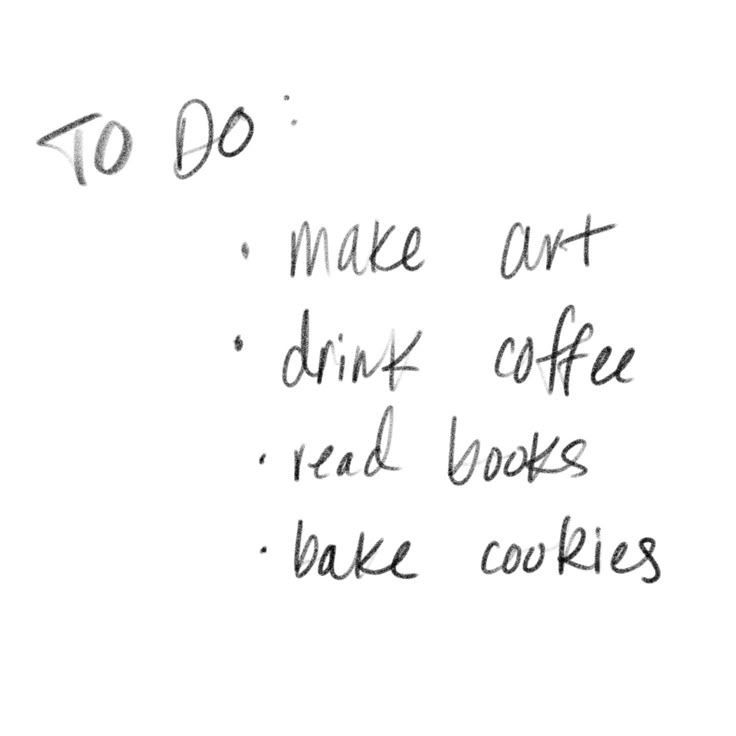 TO DO:
• make art
• drink coffee
• read books
• bake cookies